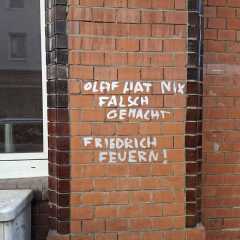 OLAF HAT NIX
FALSCH
GEMACHT
FRIEDRICH
FEUERN!